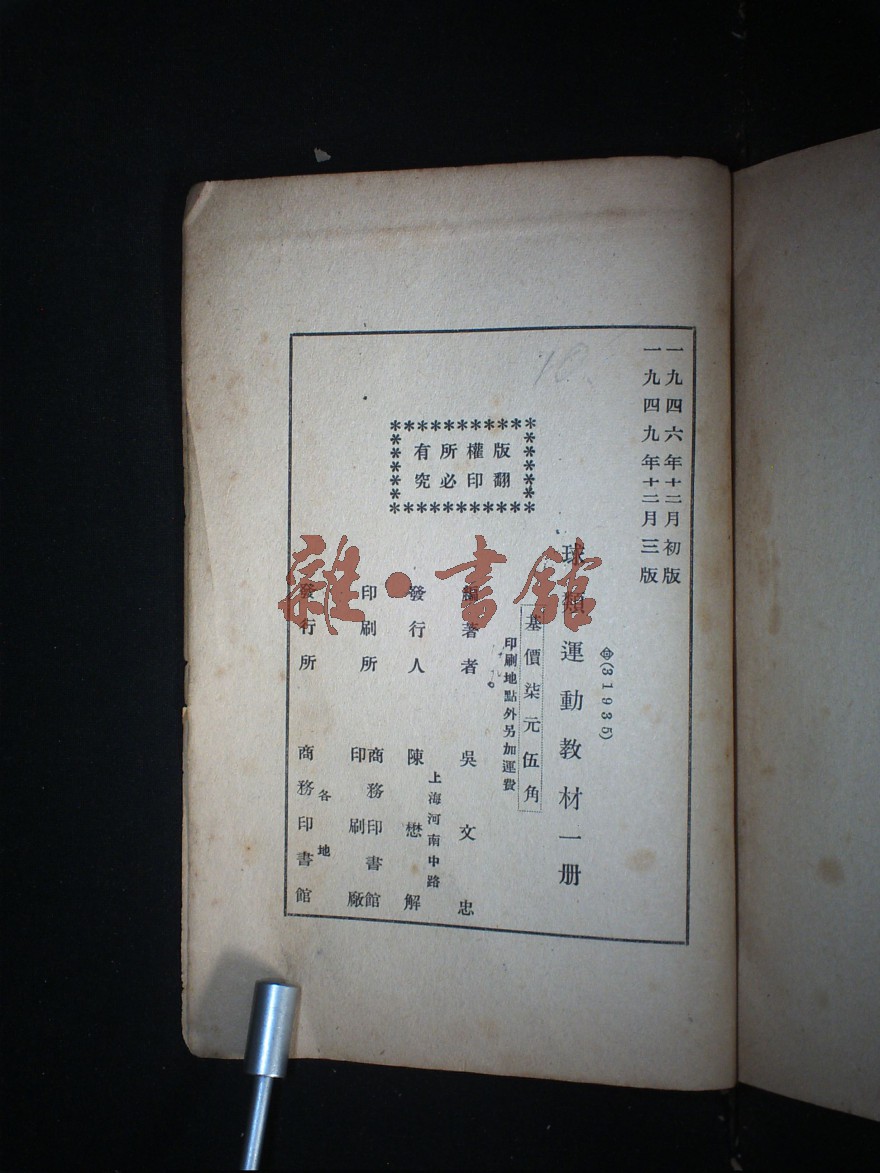 一九四六年十二月初版
一九四九年十二月三版
(31935)
球類運動教材一册
基價柒元伍角
印刷地點外另加運費
版權所有
翻印必究
編著者 吳文忠
上海河南中路
發行人 陳懋解
印刷所 商務印書館印刷廠
各地
發行所 商務印書館
雜·書館
10